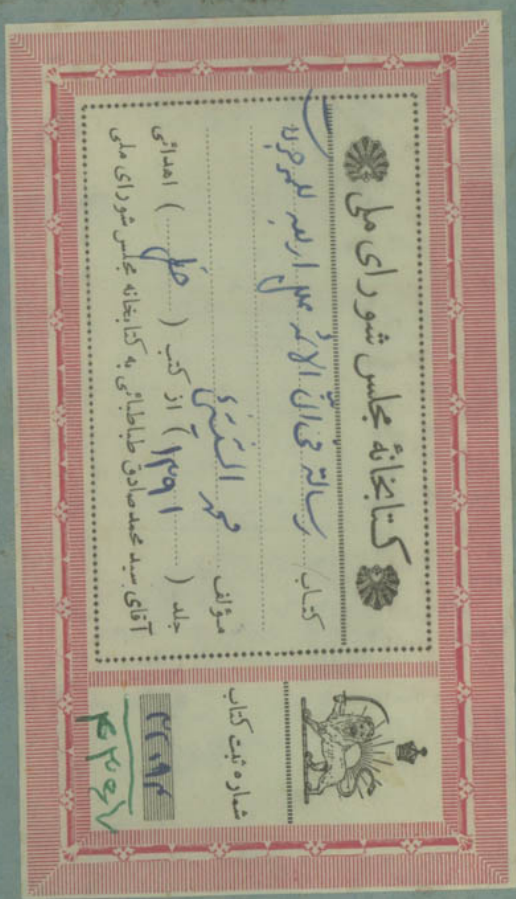 کتابخانهٔ مجلس شورای ملی
کتاب رسالة فی ان الائمه علل اربعه للموجودات
مؤلف محمد
جلد ( ۱۳۹۱ ) از کتب ( خطی ) اهدائی
آقای سید محمد صادق طباطبائی به کتابخانه مجلس شورای ملی
شماره ثبت کتاب